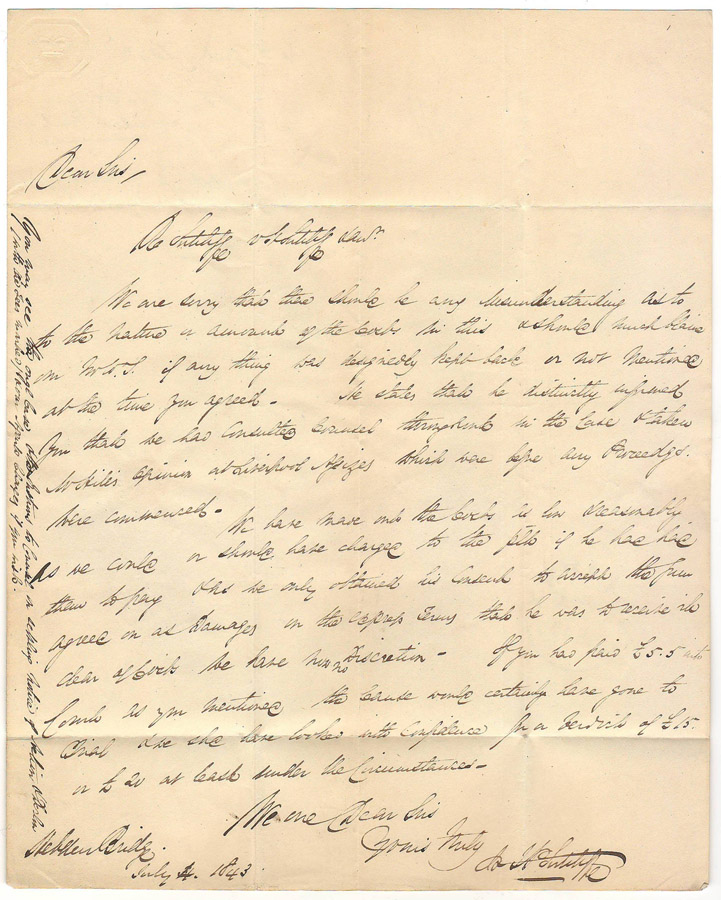 Dear Sirs,
Re Sutcliffe v Sutcliffe
We are sorry that there should be any misunderstanding as to
to the nature or amount of the Costs in this & should much blame
our W.S. if any thing was designedly kept back or not mentioned
at the time you agreed - He states that he distinctly informed
you that we had consulted Counsel throughout in the Case & taken
opinion at Liverpool Assizes which were before any Proceedgs.
were commenced - We have made out the Costs as low & reasonably
as we could or should have charged to the pltf if he had had
them to pay & as we only obtained his consent to accept the sum
agreed on as Damages on the express Terms that he was to receive it
clear of Costs we have now no Discretion - If you had paid £5.5 into
Court as you mentioned the Cause would certainly have gone to
Trial & we should have looked with confidence for a Verdict of £15.
or £20 at least under the Circumstances -
We are Dear Sirs
Yours truly
Sutcliffe
Hebden Bridge
July 4. 1843
You may see the original Case & Instructions to Counsel &
Agents charges if you wish.